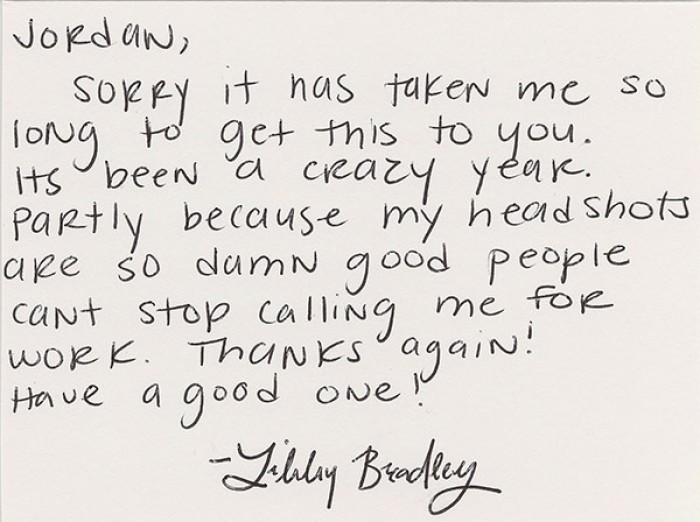 Jordan,
Sorry it has taken me so
long to get this to you.
Its been a crazy year.
Partly because my headshots
are so damn good people
cant stop calling me for
work. Thanks again!
Have a good one!
-Libby Bradley